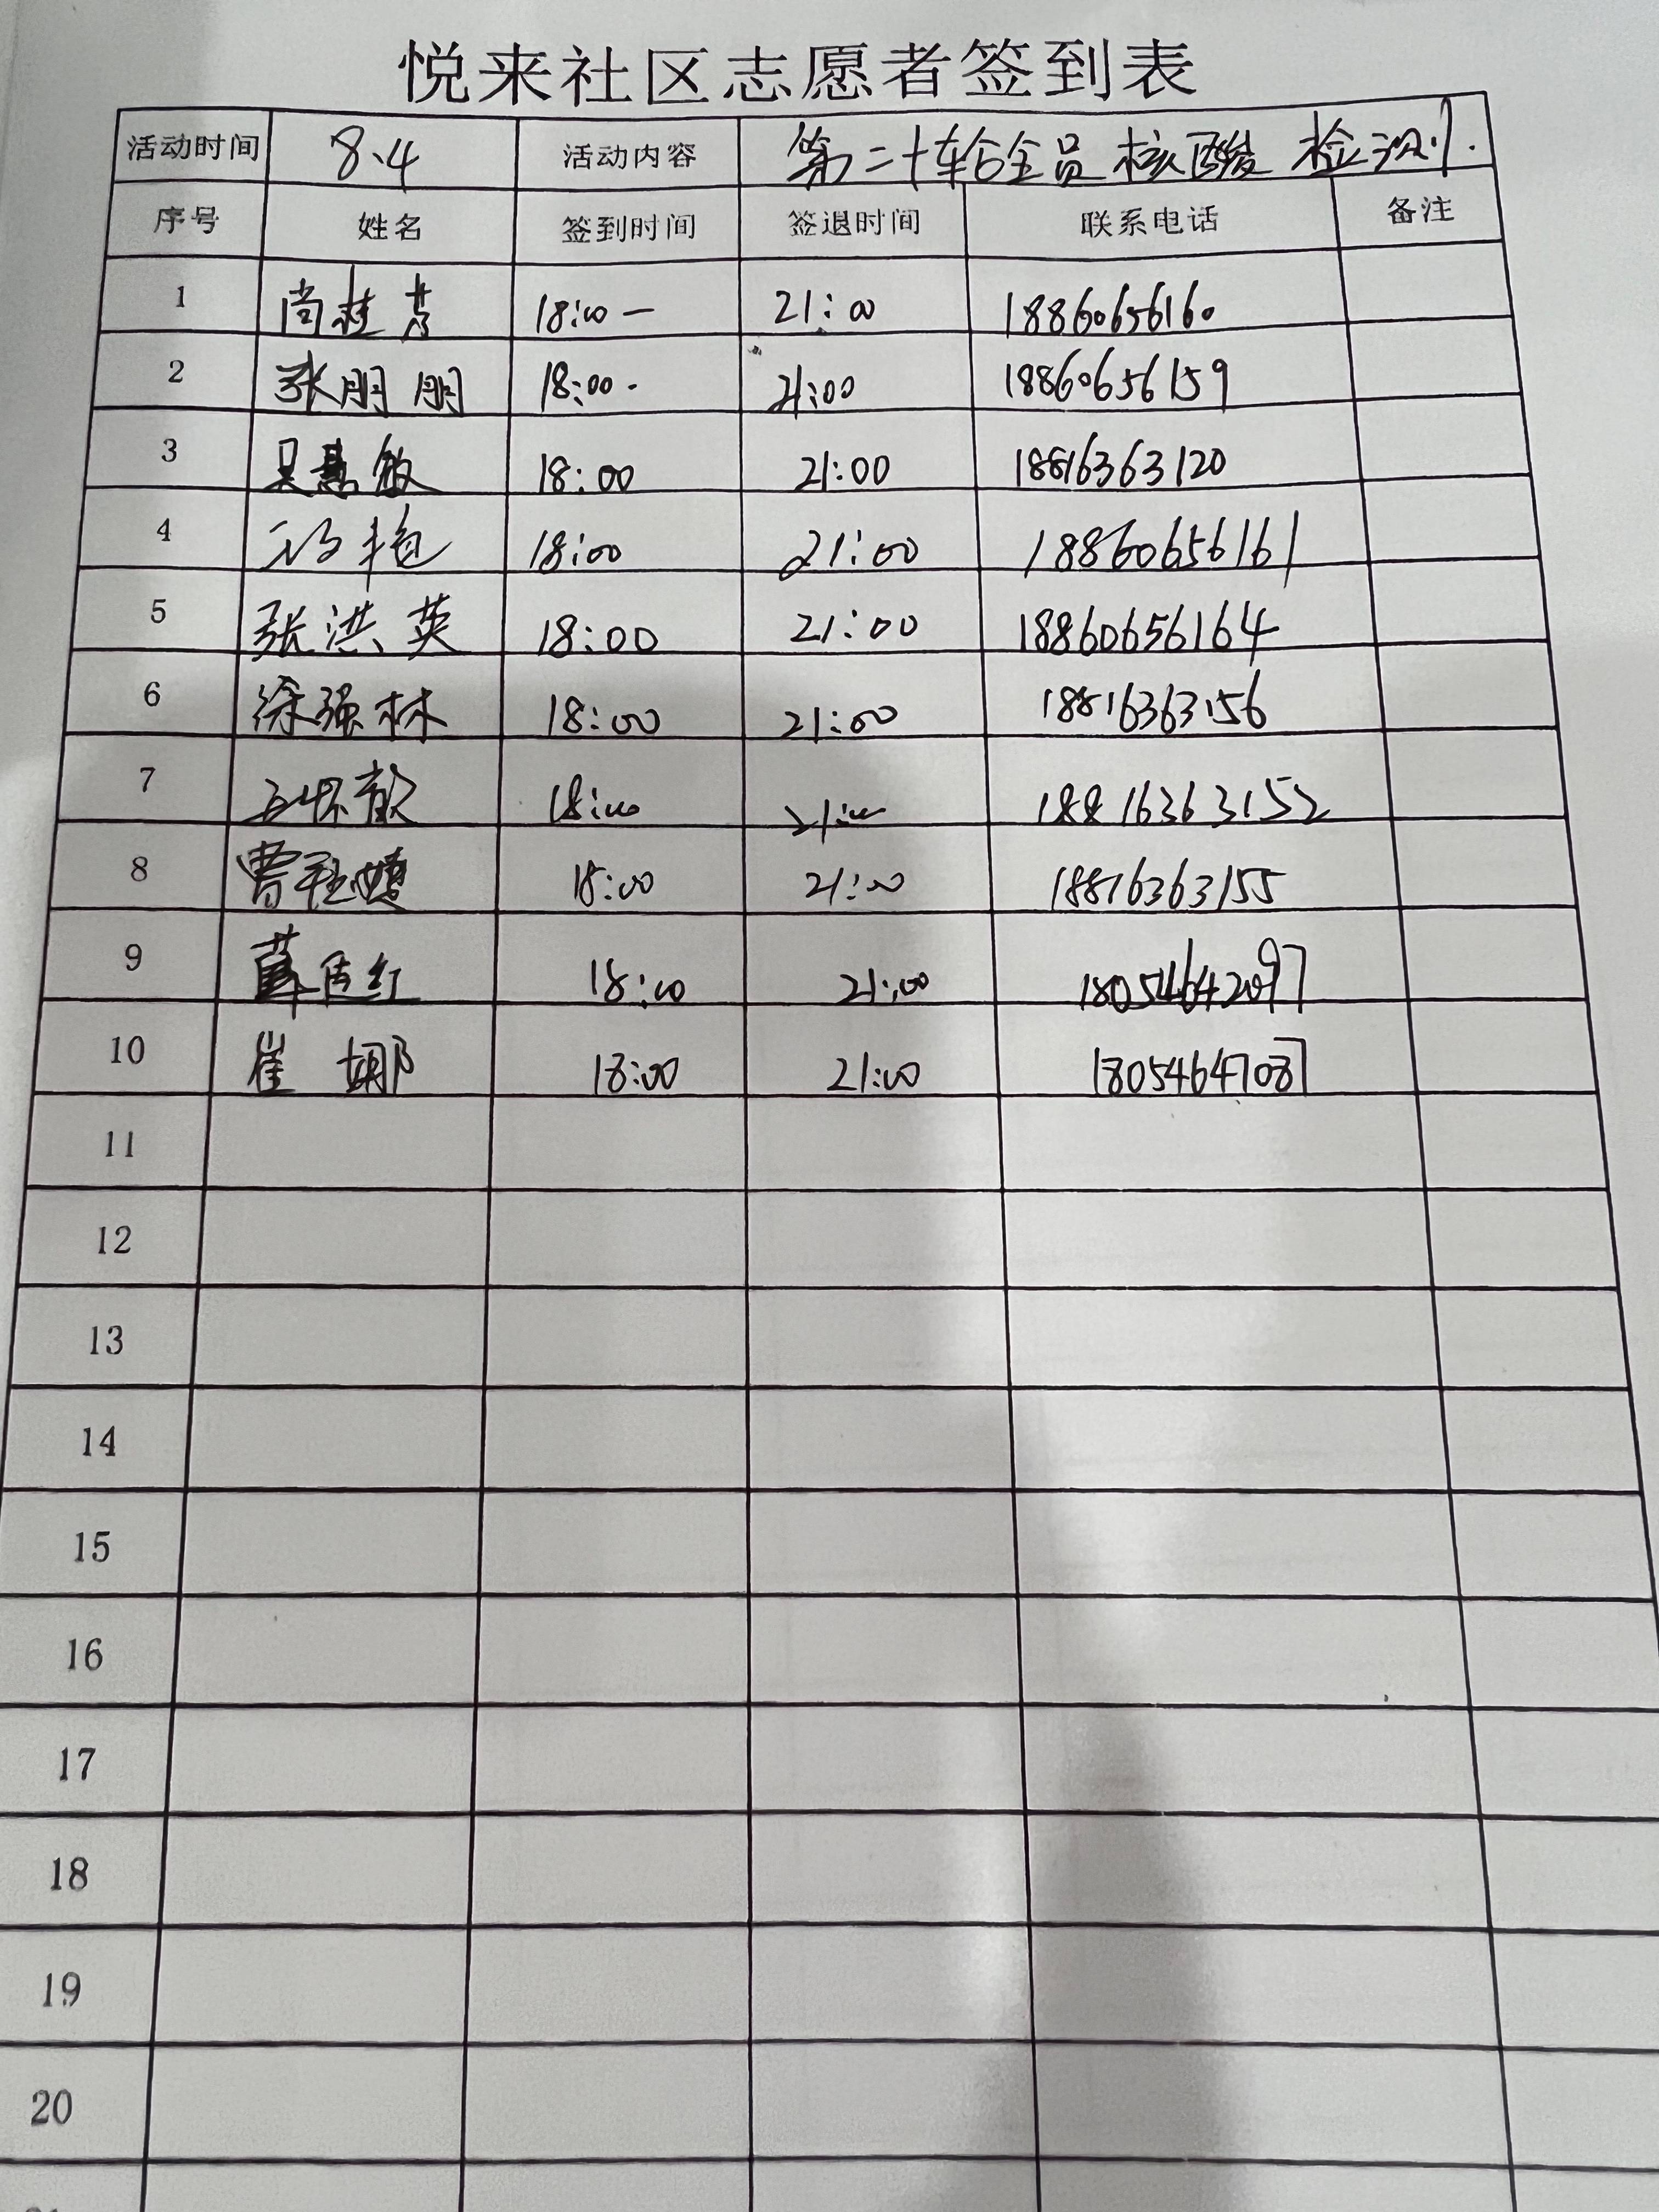 悦来社区志愿者签到表
活动时间 8.4 活动内容 第二十轮全员核酸检测.
序号 姓名 签到时间 签退时间 联系电话 备注
1 尚桂芳 18:00 — 21:00 18860656160
2 张朋朋 18:00. 21:00 18860656159
3 吴惠敏 18:00 21:00 18816363120
4 艳 18:00 21:00 18860656161
5 张洪英 18:00 21:00 18860656164
6 徐强林 18:00 21:00 18816363156
7 18:00 21:00 18816363152
8 曹 18:00 21:00 18816363155
9 薛 红 18:00 21:00 18054642097
10 崔娜 18:00 21:00 18054647087
11
12
13
14
15
16
17
18
19
20